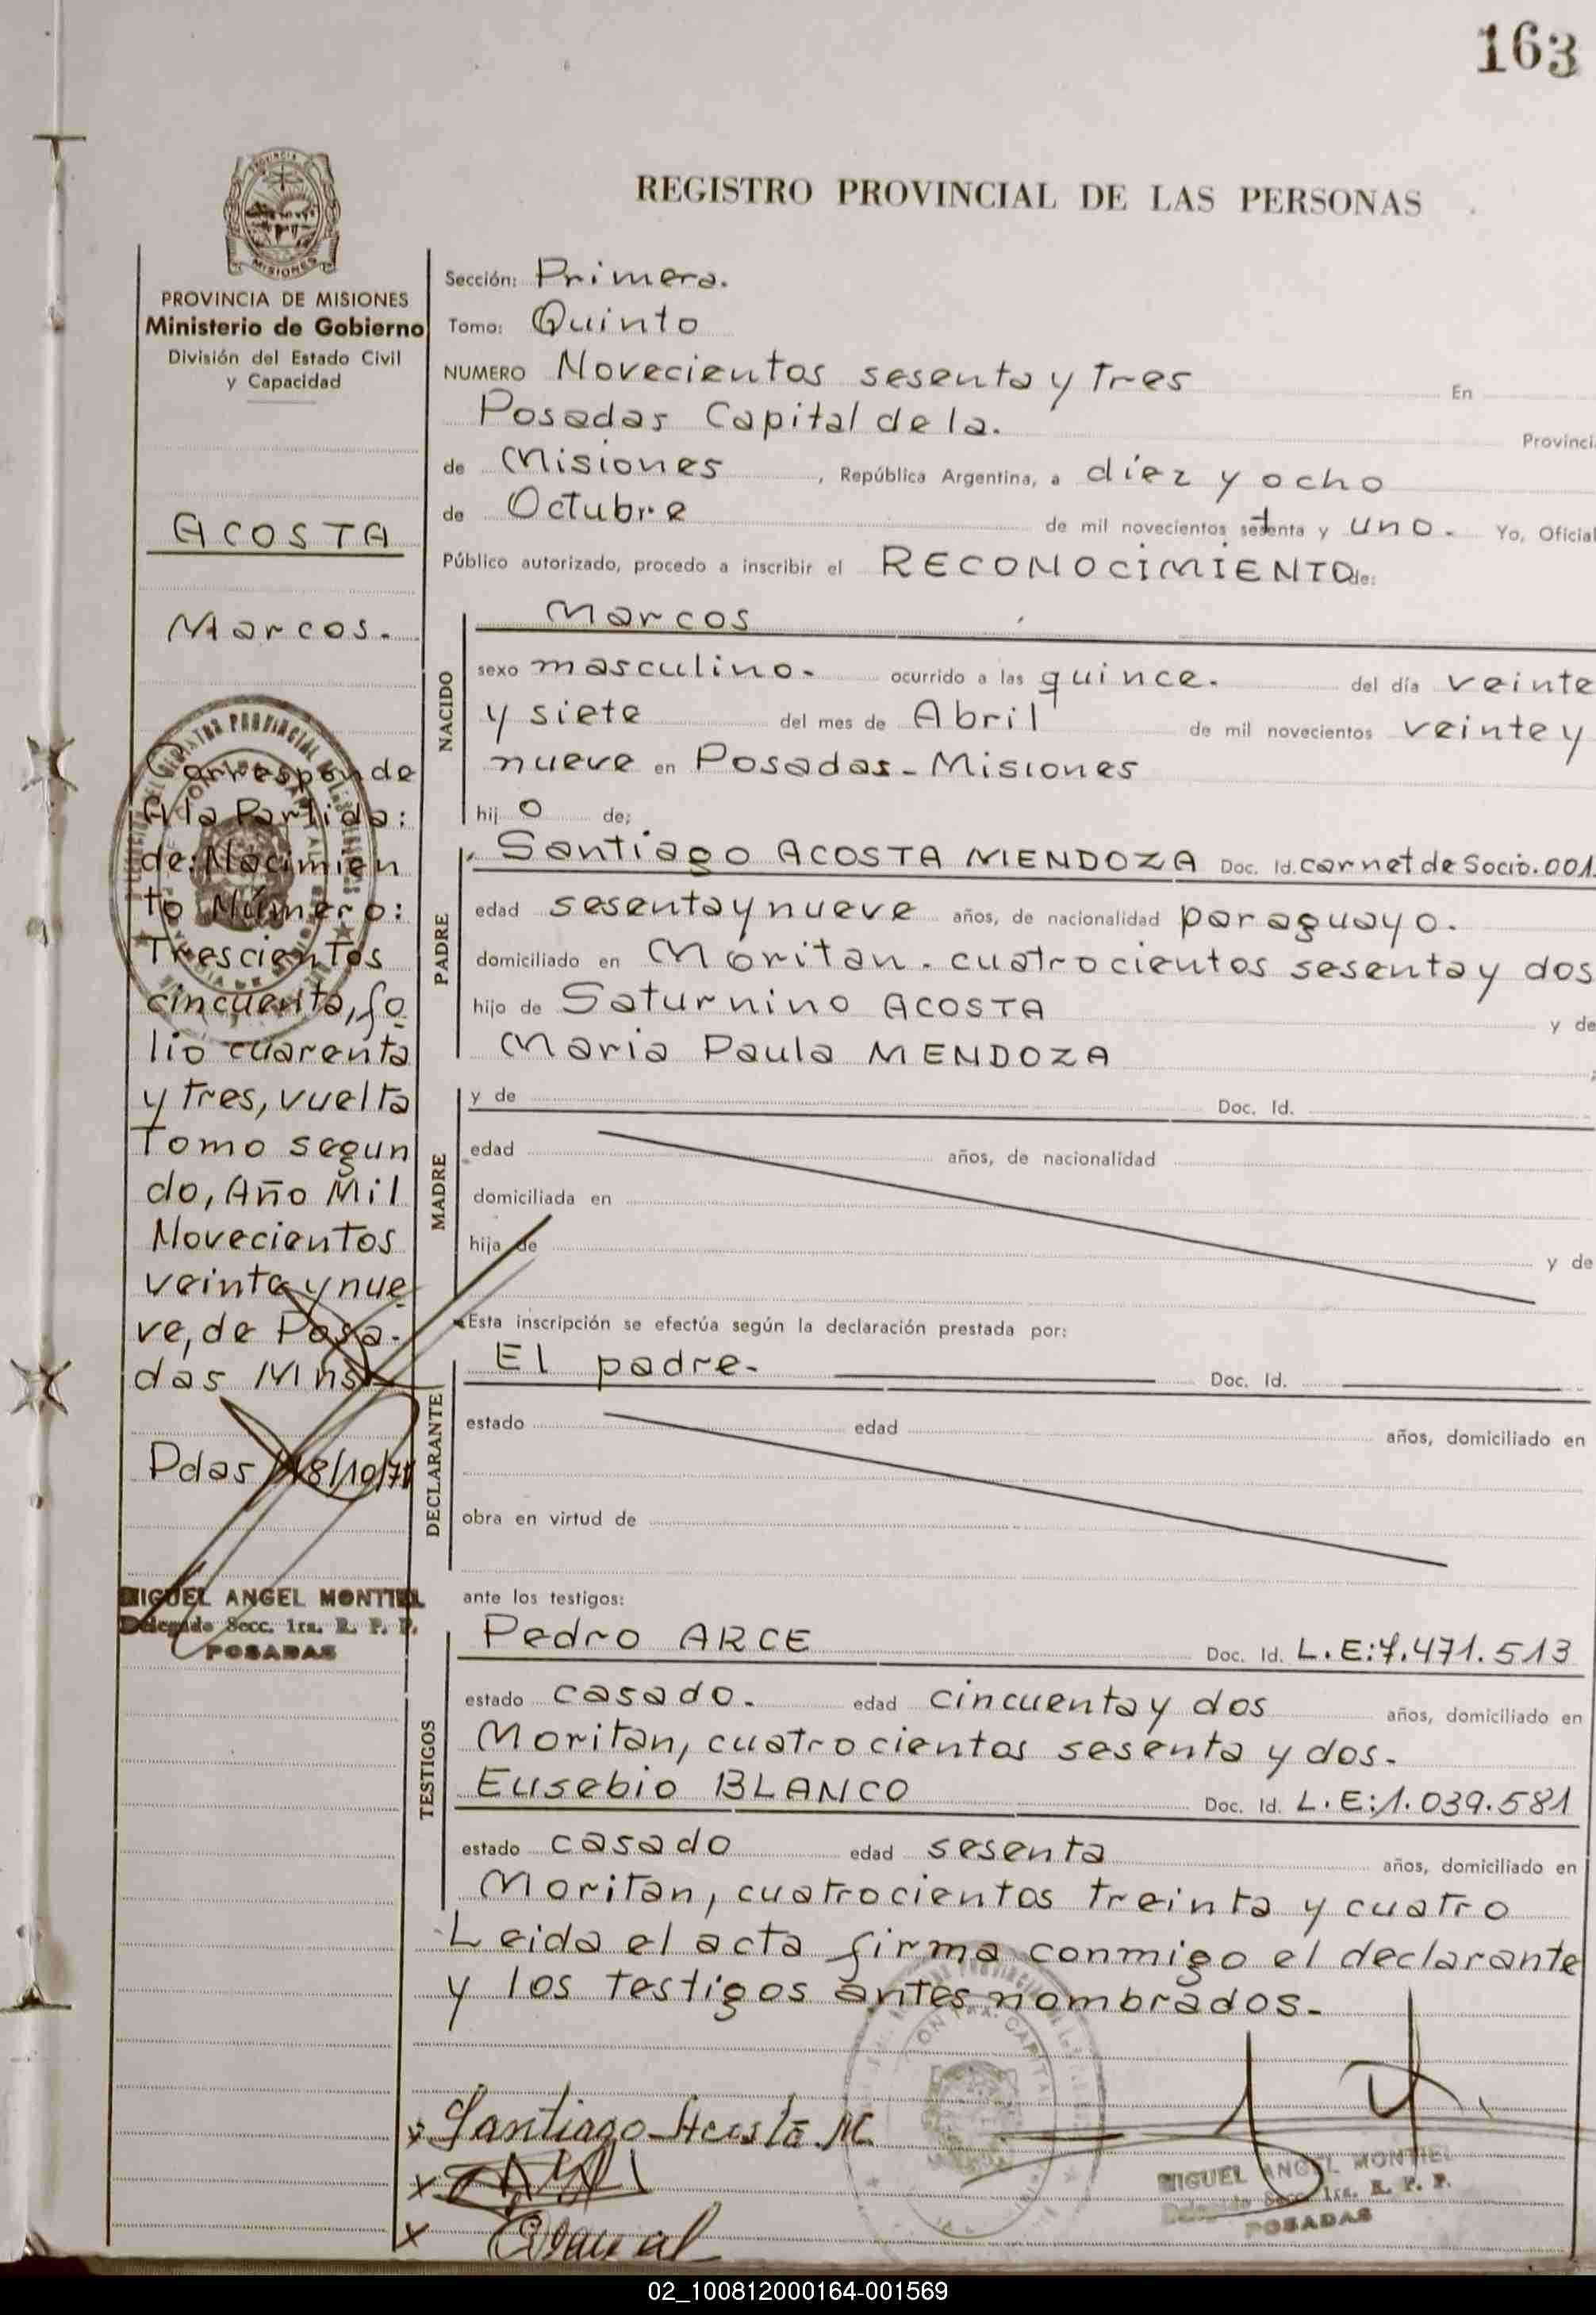 163
REGISTRO PROVINCIAL DE LAS PERSONAS
PROVINCIA DE MISIONES
Ministerio de Gobierno
División del Estado Civil
y Capacidad
ACOSTA
Marcos.
Corresponde
A la Partida:
de: Nacimien
to Número:
Trescientos
cincuenta, fo
lio cuarenta
y tres, vuelta
Tomo segun
do, Año Mil
Novecientos
veinte y nue
ve, de Posa-
das Mns
Pdas 18/10/71
MIGUEL ANGEL MONTIEL
Delegado Secc. 1ra. R. P. P.
POSADAS
Sección: Primera.
Tomo: Quinto
NUMERO Novecientos sesenta y Tres En
Posadas Capital de la. Provinci
de Misiones , República Argentina, a diez y ocho
de Octubre de mil novecientos setenta y uno. Yo, Oficial
Público autorizado, procedo a inscribir el RECONOCIMIENTO de:
NACIDO
Marcos
sexo masculino. ocurrido a las quince. del día veinte
y siete del mes de Abril de mil novecientos veinte y
nueve en Posadas - Misiones
hij o de;
PADRE
Santiago ACOSTA MENDOZA Doc. Id. carnet de Socio. 001.
edad sesenta y nueve años, de nacionalidad paraguayo.
domiciliado en Moritan. cuatrocientos sesenta y dos
hijo de Saturnino ACOSTA y de
Maria Paula MENDOZA
MADRE
y de Doc. Id.
edad años, de nacionalidad
domiciliada en
hija de y de
Esta inscripción se efectúa según la declaración prestada por:
DECLARANTE
El padre. Doc. Id.
estado edad años, domiciliado en
obra en virtud de
ante los testigos:
TESTIGOS
Pedro ARCE Doc. Id. L.E: 7.471.513
estado casado. edad cincuenta y dos años, domiciliado en
Moritan, cuatrocientos sesenta y dos.
Eusebio BLANCO Doc. Id. L.E: 1.039.581
estado casado edad sesenta años, domiciliado en
Moritan, cuatrocientos treinta y cuatro
Leida el acta firma conmigo el declarante
y los testigos antes nombrados.
Santiago Acosta M.
MIGUEL ANGEL MONTIEL
Delegado Secc. 1ra. R. P. P.
POSADAS
02_100812000164-001569